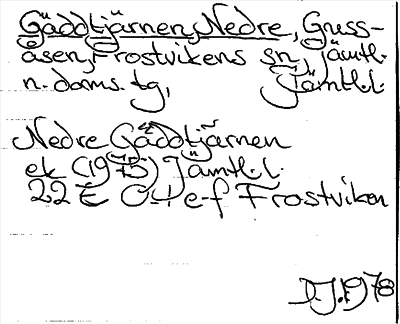 Gäddtjärnen, Nedre, Gruss-
åsen, Frostvikens sn, Jämtl.
n. doms. tg, Jämtl.l.
Nedre Gäddtjärnen
ek (1975) Jämtl.l.
22 E 0-1 e-f Frostviken
D.J. 1978